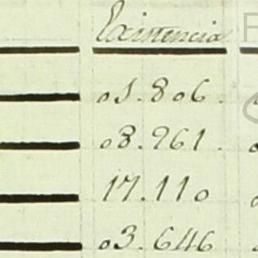 Existencia
01.806.
08.961.
17.110
03.646